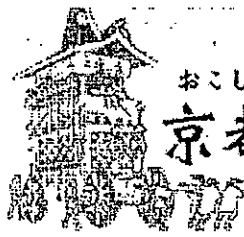 おこし
京都